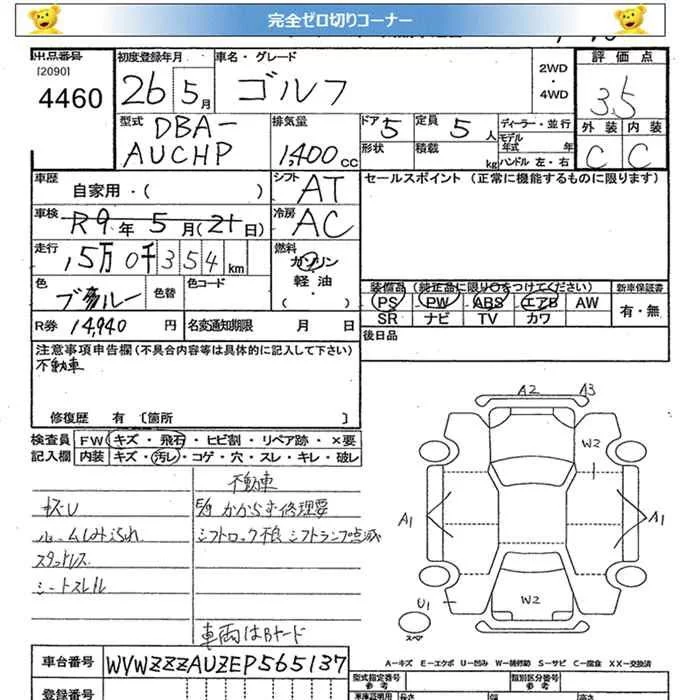 完全ゼロ切りコーナー
出品番号 初度登録年月 車名・グレード 2WD・4WD 評価点
[2090]
4460 26 5月 ゴルフ 3.5
型式 DBA-AUCHP 排気量 1,400cc ドア 5 定員 5人 ディーラー・並行 外装 内装
形状 積載 kg モデル年式 年 ハンドル 左・右 C C
車歴 自家用・( ) シフト AT セールスポイント (正常に機能するものに限ります)
車検 R9年5月(21日) 冷房 AC
走行 15万0千354km 燃料 ガソリン 軽油 ・( )
色 ブルー 色替 色コード 装備品 (純正品に限り○をつけてください) 新車保証書
PS PW ABS エアB AW 有・無
R券 14,940円 名変通知期限 月 日 SR ナビ TV カワ
注意事項申告欄 (不具合内容等は具体的に記入して下さい) 後日品
不動車
修復歴 有 [箇所 ]
検査員 FW キズ・飛石・ヒビ割・リペア跡・×要
記入欄 内装 キズ・汚レ・コゲ・穴・スレ・キレ・破レ
不動車
キズU かからず修理要
ルームしみ汚れ シフトロック不良 シフトランプ点滅
スタッドレス
シートスレ
車両はBヤード
A2 A3
W2
A1 A1
U1 W2
スペア
A-キズ E-エクボ U-凹み W-補修跡 S-サビ C-腐食 XX-交換済
車台番号 WVWZZZAUZEP565137 型式指定番号 参考 類別区分番号 参考
登録番号 車庫証明用 参考 長さ 幅 高さ